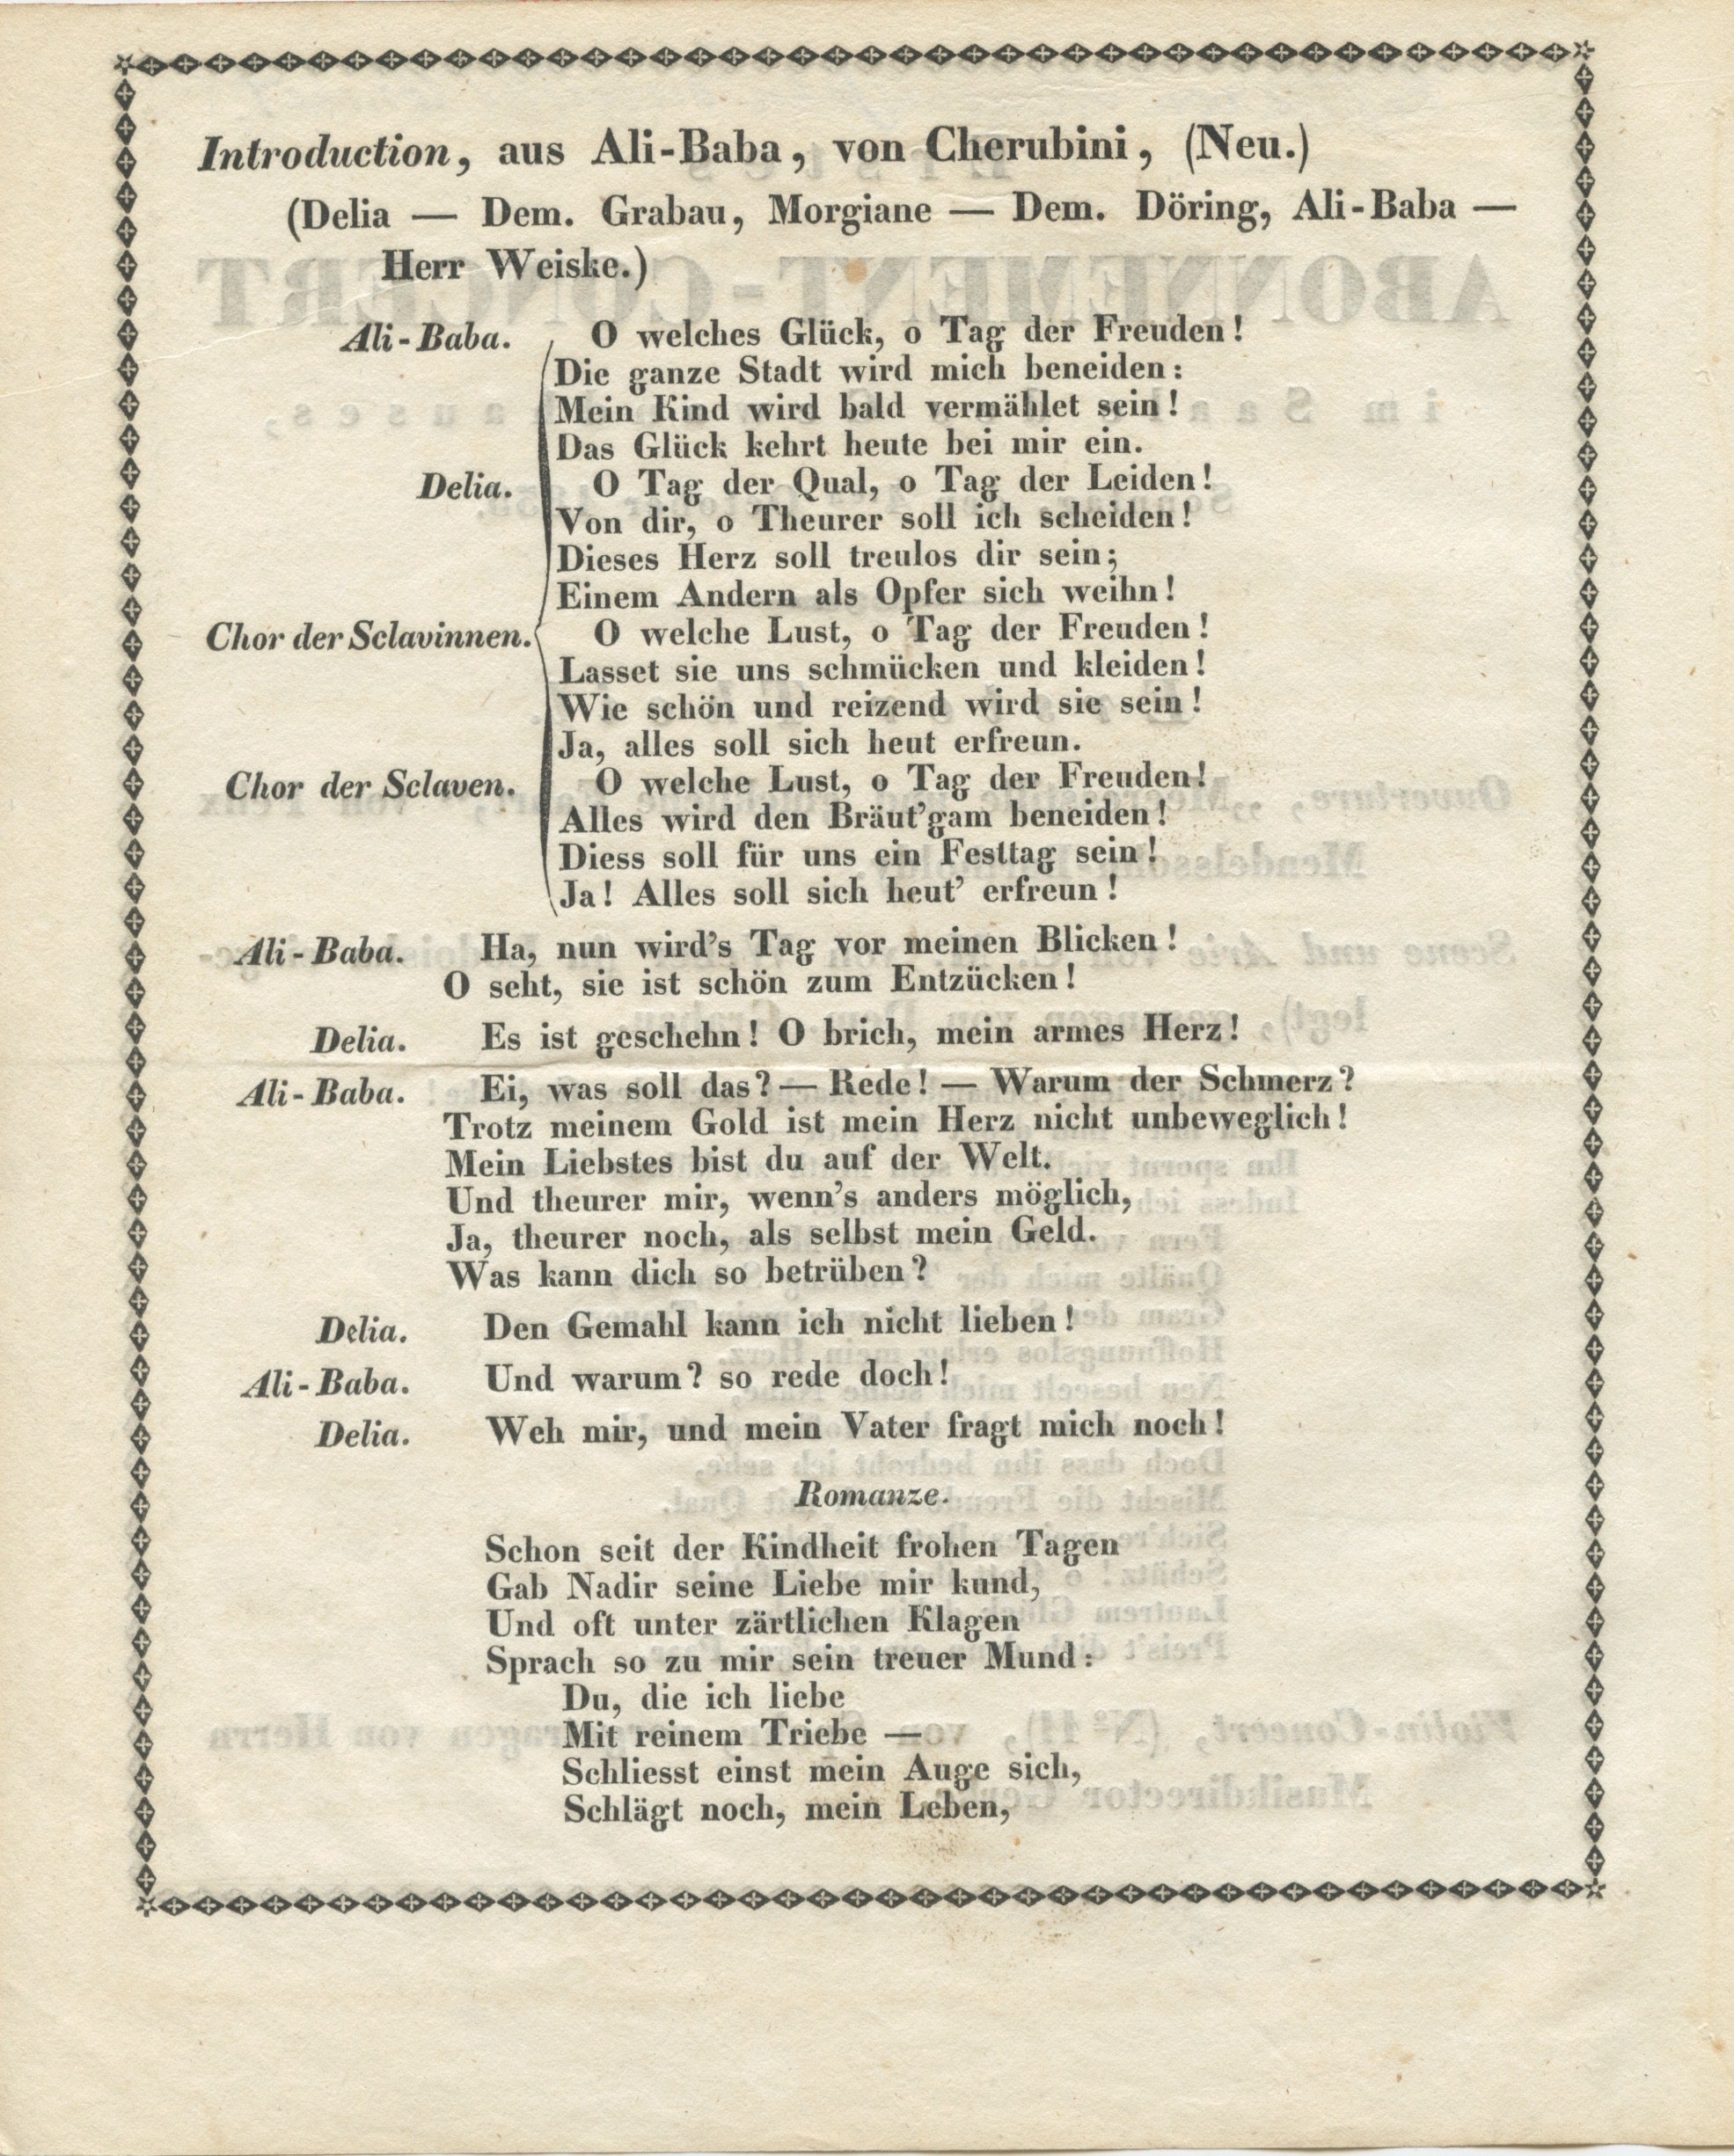 Introduction, aus Ali-Baba, von Cherubini, (Neu.)
(Delia — Dem. Grabau, Morgiane — Dem. Döring, Ali-Baba —
Herr Weiske.)
Ali-Baba. O welches Glück, o Tag der Freuden!
Die ganze Stadt wird mich beneiden:
Mein Kind wird bald vermählet sein!
Das Glück kehrt heute bei mir ein.
Delia. O Tag der Qual, o Tag der Leiden!
Von dir, o Theurer soll ich scheiden!
Dieses Herz soll treulos dir sein;
Einem Andern als Opfer sich weihn!
Chor der Sclavinnen. O welche Lust, o Tag der Freuden!
Lasset sie uns schmücken und kleiden!
Wie schön und reizend wird sie sein!
Ja, alles soll sich heut erfreun.
Chor der Sclaven. O welche Lust, o Tag der Freuden!
Alles wird den Bräut'gam beneiden!
Diess soll für uns ein Festtag sein!
Ja! Alles soll sich heut' erfreun!
Ali-Baba. Ha, nun wird's Tag vor meinen Blicken!
O seht, sie ist schön zum Entzücken!
Delia. Es ist geschehn! O brich, mein armes Herz!
Ali-Baba. Ei, was soll das? — Rede! — Warum der Schmerz?
Trotz meinem Gold ist mein Herz nicht unbeweglich!
Mein Liebstes bist du auf der Welt.
Und theurer mir, wenn's anders möglich,
Ja, theurer noch, als selbst mein Geld.
Was kann dich so betrüben?
Delia. Den Gemahl kann ich nicht lieben!
Ali-Baba. Und warum? so rede doch!
Delia. Weh mir, und mein Vater fragt mich noch!
Romanze.
Schon seit der Kindheit frohen Tagen
Gab Nadir seine Liebe mir kund,
Und oft unter zärtlichen Klagen
Sprach so zu mir sein treuer Mund:
Du, die ich liebe
Mit reinem Triebe —
Schliesst einst mein Auge sich,
Schlägt noch, mein Leben,